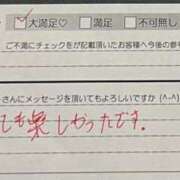 ☑大満足♡ □満足 □不可無し
ご不満にチェックを が記載頂いたお客様へ今後の参考
さんにメッセージを頂いてもよろしいですか (^-^)
ても楽しかったです。